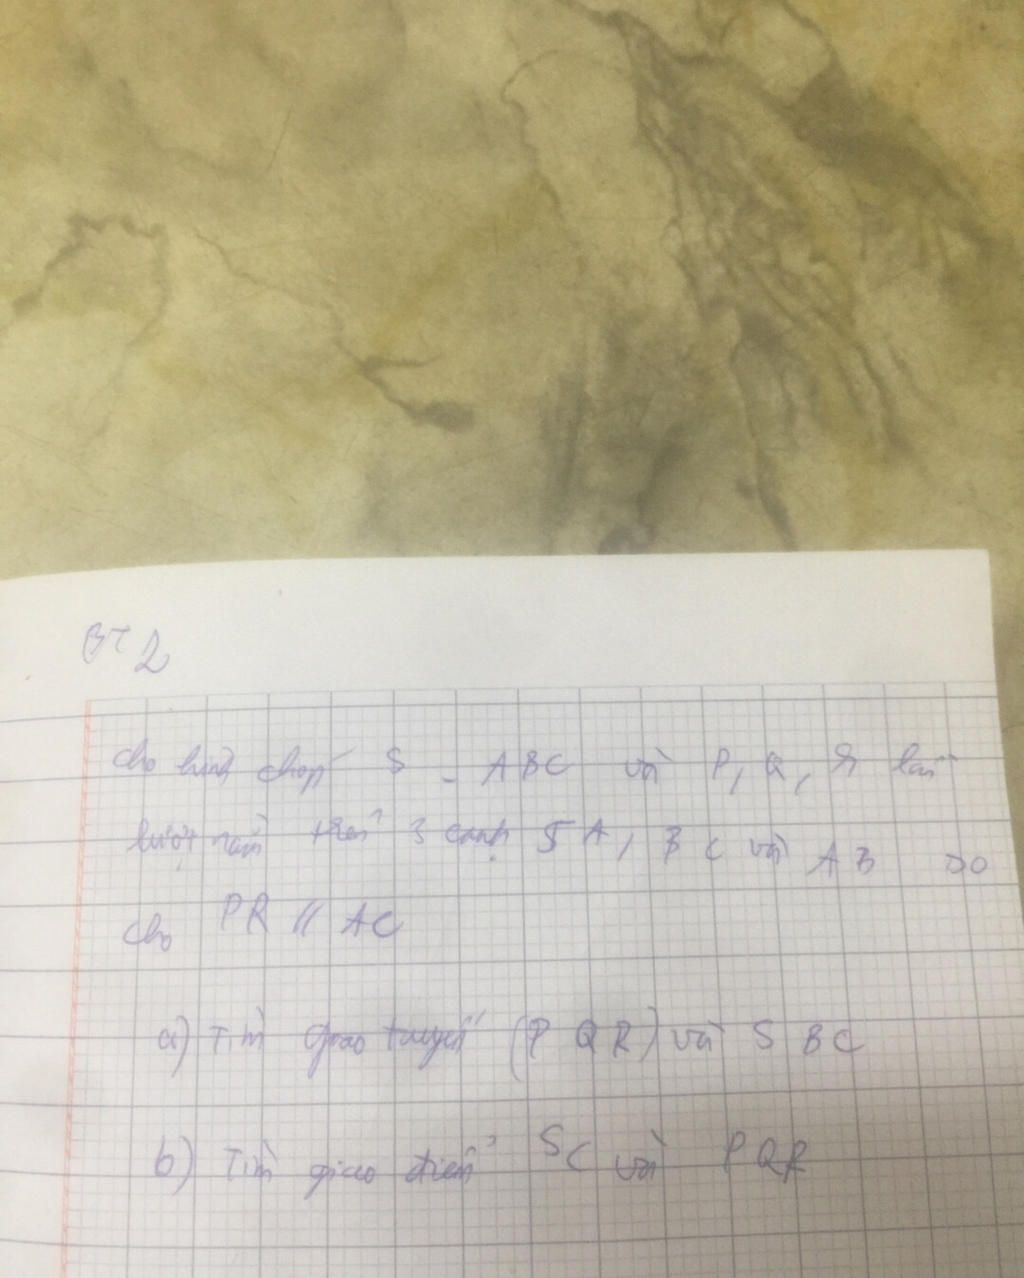 BT 2
Cho hình chóp S - ABC và P, Q, R lần
lượt nằm trên 3 cạnh SA, BC và AB so
cho PR // AC
a) Tìm giao tuyến (PQR) và SBC
b) Tìm giao điểm SC và PQR